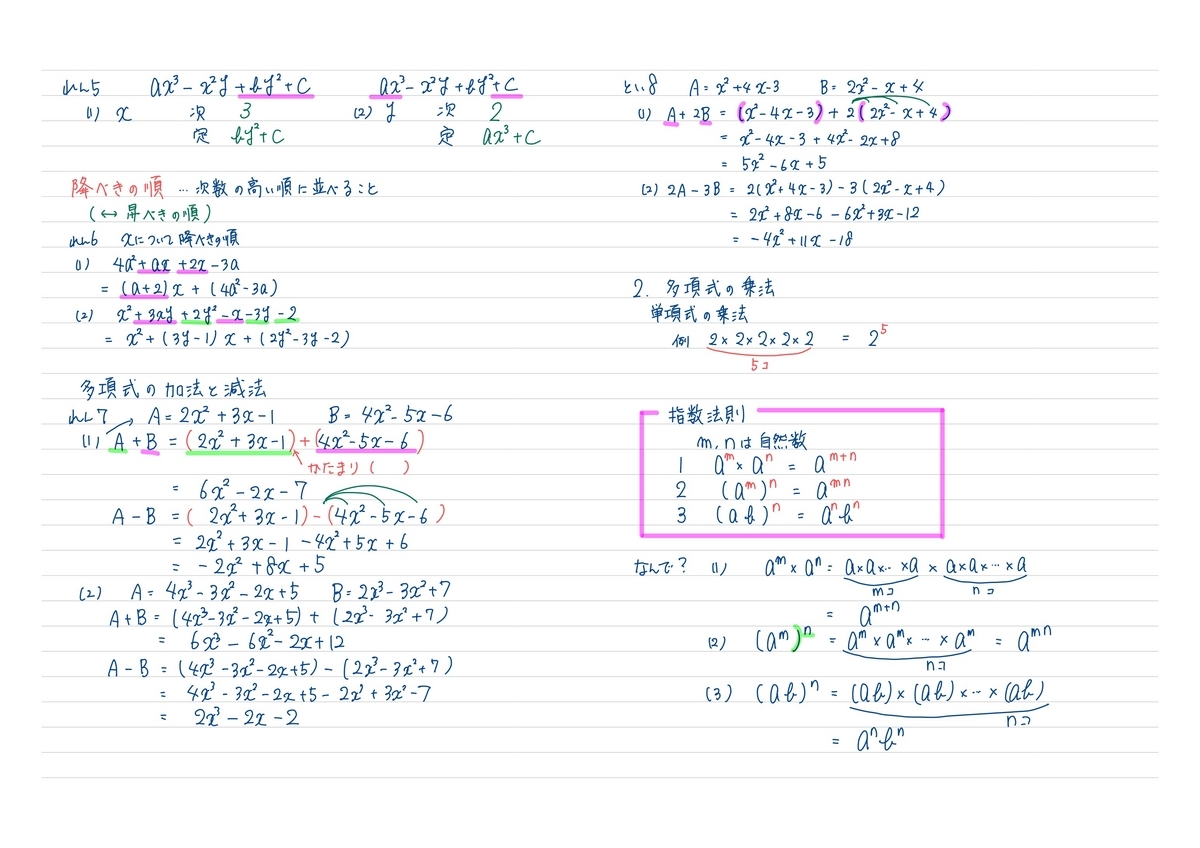 れい5 ax³ - x²y + by² + c ax³ - x²y + by² + c
(1) x 次 3 (2) y 次 2
定 by² + c 定 ax³ + c
降べきの順 … 次数の高い順に並べること
(↔ 昇べきの順)
れい6 xについて降べきの順
(1) 4a² + ax + 2x - 3a
= (a+2)x + (4a² - 3a)
(2) x² + 3xy + 2y² - x - 3y - 2
= x² + (3y-1)x + (2y² - 3y - 2)
多項式の加法と減法
れい7 A = 2x² + 3x - 1 B = 4x² - 5x - 6
(1) A + B = (2x² + 3x - 1) + (4x² - 5x - 6)
かたまり ( )
= 6x² - 2x - 7
A - B = (2x² + 3x - 1) - (4x² - 5x - 6)
= 2x² + 3x - 1 - 4x² + 5x + 6
= - 2x² + 8x + 5
(2) A = 4x³ - 3x² - 2x + 5 B = 2x³ - 3x² + 7
A + B = (4x³ - 3x² - 2x + 5) + (2x³ - 3x² + 7)
= 6x³ - 6x² - 2x + 12
A - B = (4x³ - 3x² - 2x + 5) - (2x³ - 3x² + 7)
= 4x³ - 3x² - 2x + 5 - 2x³ + 3x² - 7
= 2x³ - 2x - 2
とい8 A = x² + 4x - 3 B = 2x² - x + 4
(1) A + 2B = (x² - 4x - 3) + 2(2x² - x + 4)
= x² - 4x - 3 + 4x² - 2x + 8
= 5x² - 6x + 5
(2) 2A - 3B = 2(x² + 4x - 3) - 3(2x² - x + 4)
= 2x² + 8x - 6 - 6x² + 3x - 12
= - 4x² + 11x - 18
2. 多項式の乗法
単項式の乗法
例 2 × 2 × 2 × 2 × 2 = 2⁵
5コ
指数法則
m, nは自然数
1 aᵐ × aⁿ = aᵐ⁺ⁿ
2 (aᵐ)ⁿ = aᵐⁿ
3 (ab)ⁿ = aⁿbⁿ
なんで? (1) aᵐ × aⁿ = a×a×…×a × a×a×…×a
mコ nコ
= aᵐ⁺ⁿ
(2) (aᵐ)ⁿ = aᵐ × aᵐ × … × aᵐ = aᵐⁿ
nコ
(3) (ab)ⁿ = (ab) × (ab) × … × (ab)
nコ
= aⁿbⁿ